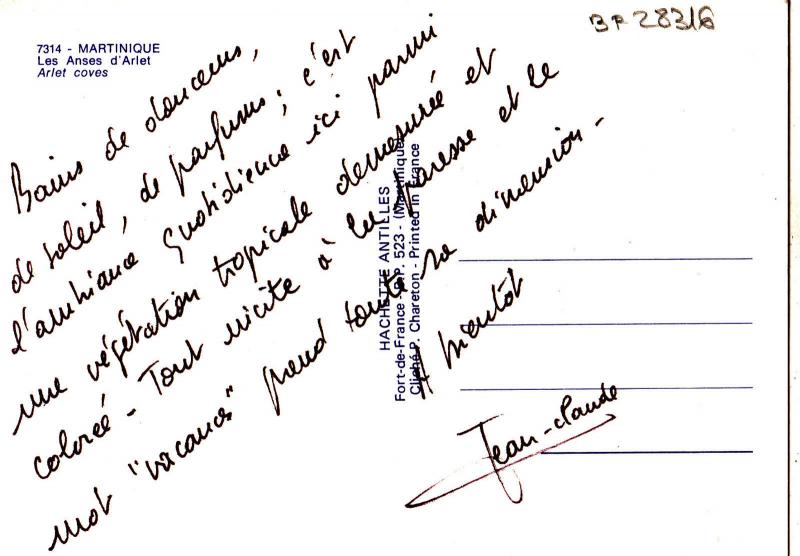 7314 - MARTINIQUE
Les Anses d'Arlet
Arlet coves
BP 28316
Bains de douceurs,
de soleil, de parfums ; c'est
l'ambiance quotidienne ici parmi
une végétation tropicale demesurée et
colorée - Tout incite à la paresse et le
mot "vacances" prend toute sa dimension -
A bientôt
Jean-claude
HACHETTE ANTILLES
Fort-de-France - B.P. 523 - (Martinique)
Cliché P. Chareton - Printed in France